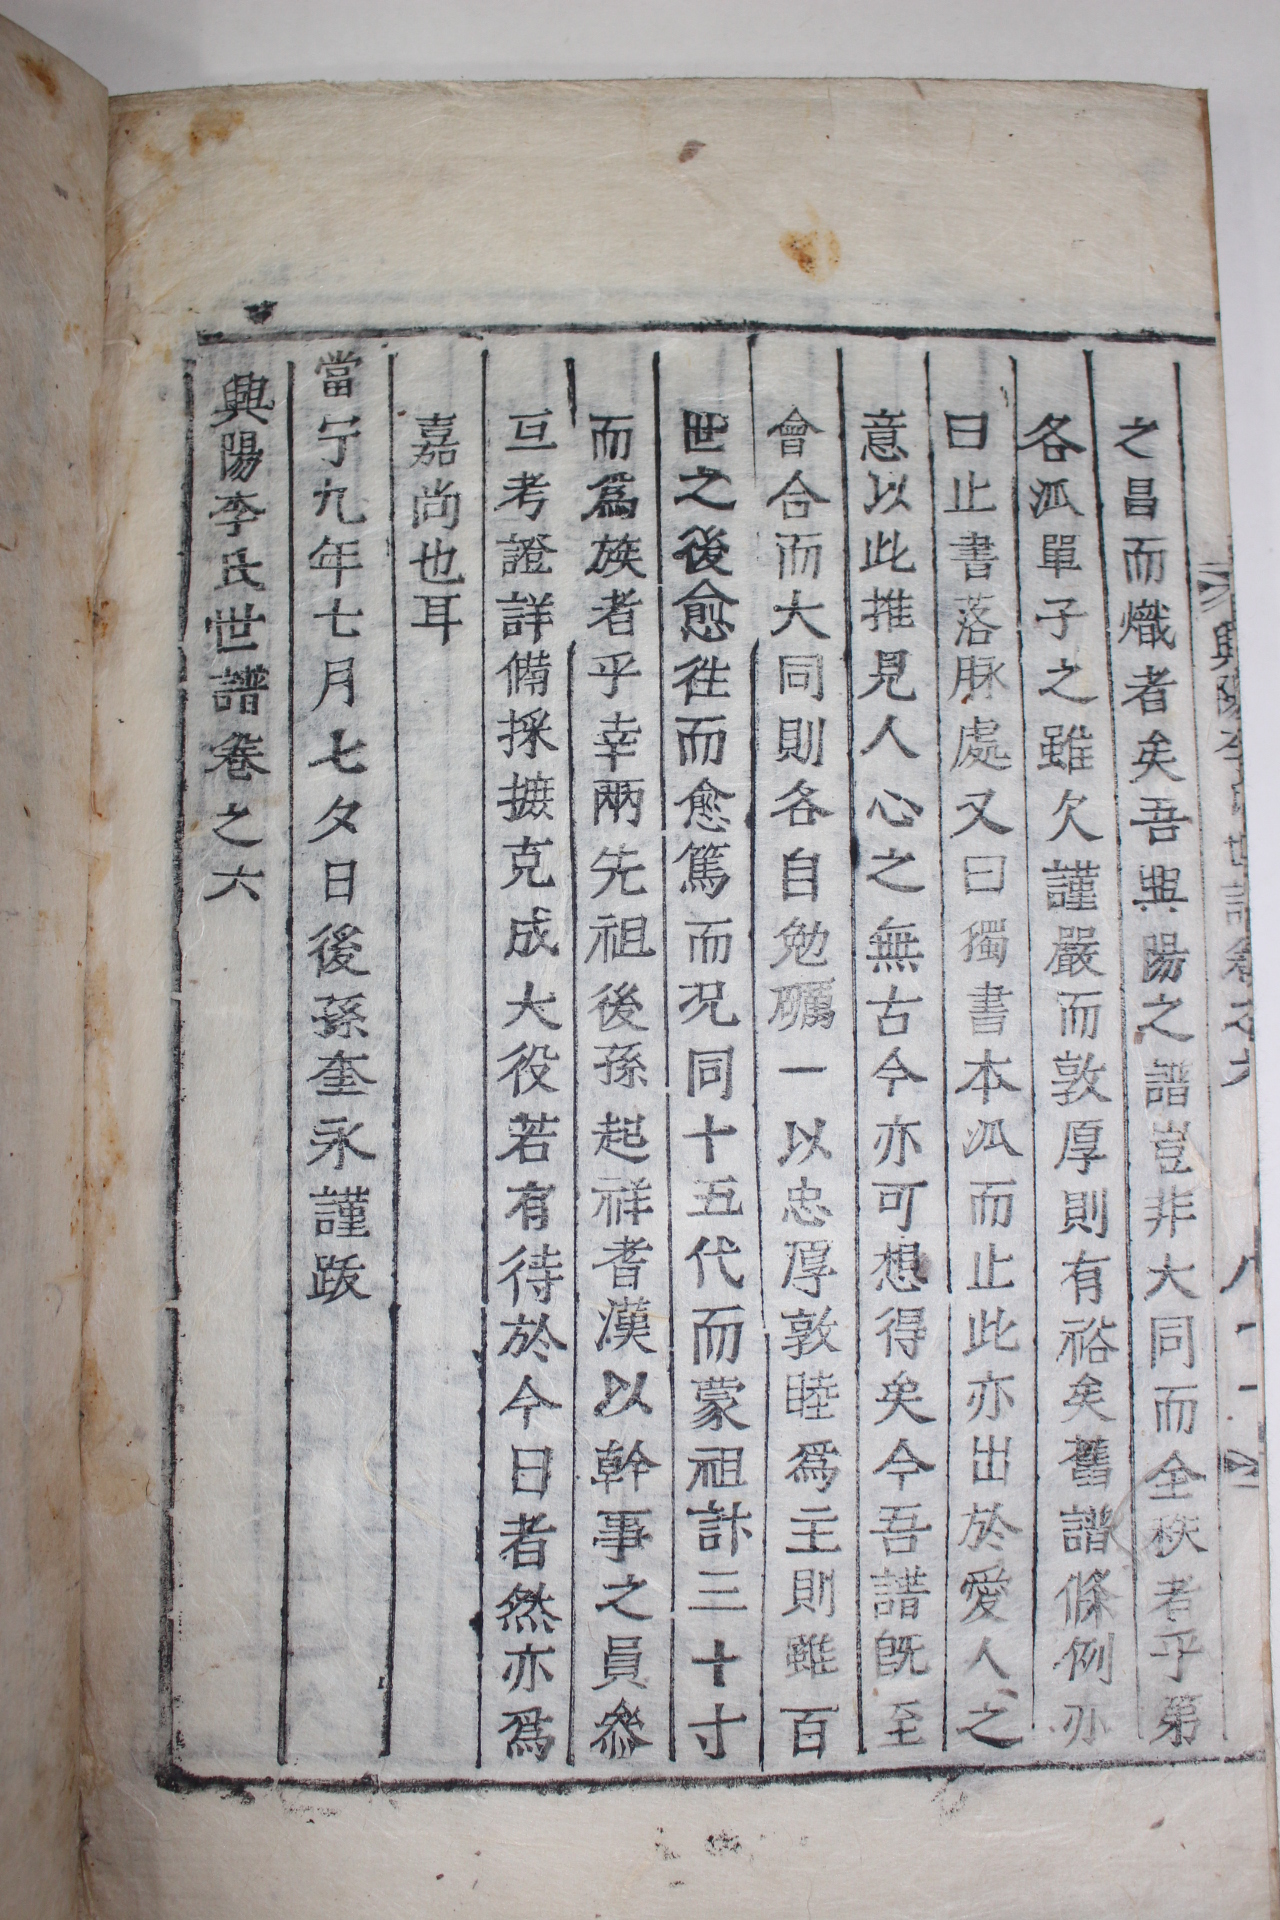 之昌而熾者矣吾興陽之譜豈非大同而全秩者乎第
各泒單子之雖欠謹嚴而敦厚則有裕矣舊譜條例亦
曰止書落脉處又曰獨書本泒而止此亦出於愛人之
意以此推見人心之無古今亦可想得矣今吾譜旣至
會合而大同則各自勉礪一以忠厚敦睦爲主則雖百
世之後愈徃而愈篤而况同十五代而蒙祖計三十寸
而爲族者乎幸兩先祖後孫起祥耆漢以幹事之員叅
亘考證詳備採摭克成大役若有待於今日者然亦爲
嘉尚也耳
當宁九年七月七夕日後孫奎永謹跋
興陽李氏世譜卷之六
興陽李氏世譜卷之六 八十一